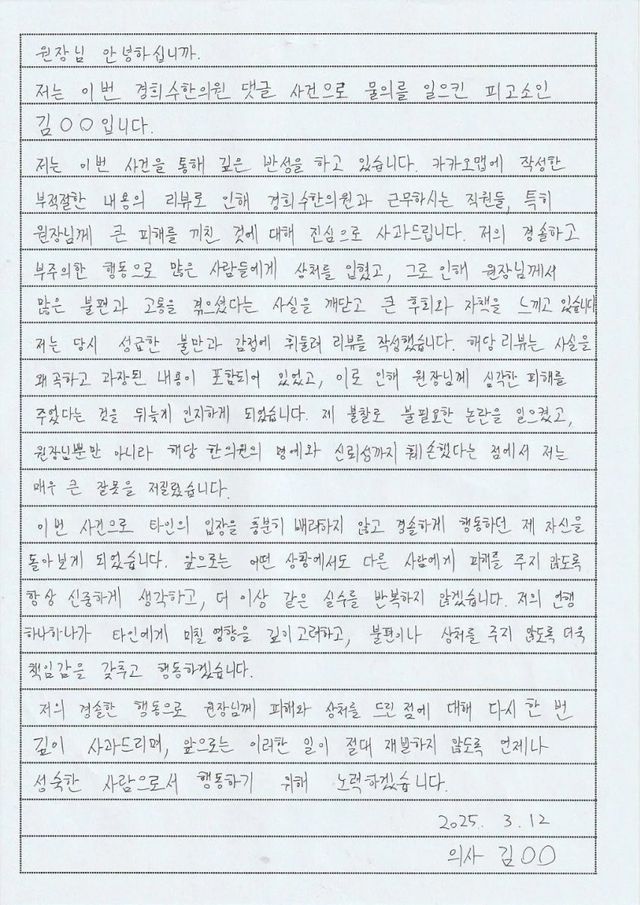 원장님 안녕하십니까.
저는 이번 경희수한의원 댓글 사건으로 물의를 일으킨 피고소인
김○○입니다.
저는 이번 사건을 통해 깊은 반성을 하고 있습니다. 카카오맵에 작성한
부적절한 내용의 리뷰로 인해 경희수한의원과 근무하시는 직원들, 특히
원장님께 큰 피해를 끼친 것에 대해 진심으로 사과드립니다. 저의 경솔하고
부주의한 행동으로 많은 사람들에게 상처를 입혔고, 그로 인해 원장님께서
많은 불편과 고통을 겪으셨다는 사실을 깨닫고 큰 후회와 자책을 느끼고 있습니다
저는 당시 성급한 불만과 감정에 휘둘려 리뷰를 작성했습니다. 해당 리뷰는 사실을
왜곡하고 과장된 내용이 포함되어 있었고, 이로 인해 원장님께 심각한 피해를
주었다는 것을 뒤늦게 인지하게 되었습니다. 제 불찰로 불필요한 논란을 일으켰고,
원장님뿐만 아니라 해당 한의원의 명예와 신뢰성까지 훼손했다는 점에서 저는
매우 큰 잘못을 저질렀습니다.
이번 사건으로 타인의 입장을 충분히 배려하지 않고 경솔하게 행동하던 제 자신을
돌아보게 되었습니다. 앞으로는 어떤 상황에서도 다른 사람에게 피해를 주지 않도록
항상 신중하게 생각하고, 더 이상 같은 실수를 반복하지 않겠습니다. 저의 언행
하나하나가 타인에게 미칠 영향을 깊이 고려하고, 불편이나 상처를 주지 않도록 더욱
책임감을 갖추고 행동하겠습니다.
저의 경솔한 행동으로 원장님께 피해와 상처를 드린 점에 대해 다시 한 번
깊이 사과드리며, 앞으로는 이러한 일이 절대 재발하지 않도록 언제나
성숙한 사람으로서 행동하기 위해 노력하겠습니다.
2025. 3. 12
의사 김○○